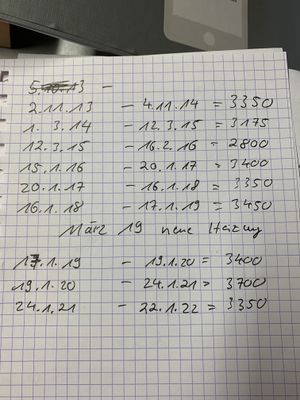 5.10.13 -
2.11.13 - 4.11.14 = 3350
1. 3.14 - 12.3.15 = 3175
12.3.15 - 16.2.16 = 2800
15.1.16 - 20.1.17 = 3400
20.1.17 - 16.1.18 = 3350
16.1.18 - 17.1.19 = 3450
März 19 neue Heizung
17.1.19 - 19.1.20 = 3400
19.1.20 - 24.1.21 = 3700
24.1.21 - 22.1.22 = 3350